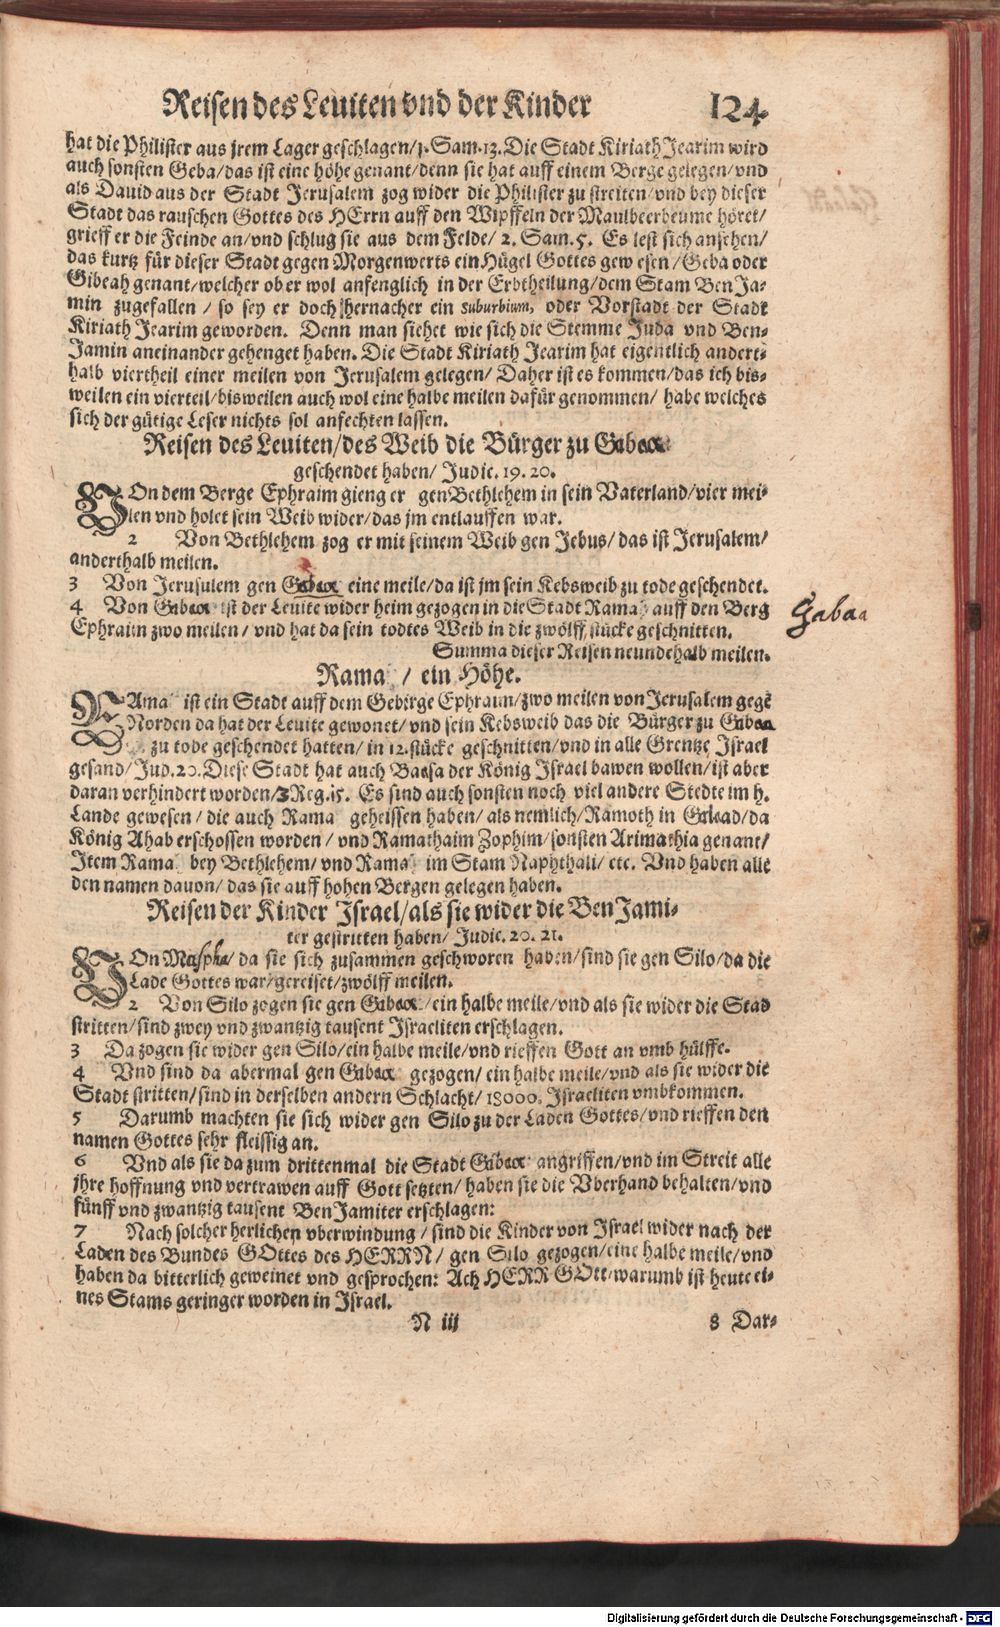 Reisen des Leuiten vnd der Kinder 124.
hat die Philister aus jrem Lager geschlagen/1. Sam. 13. Die Stadt Kiriath Jearim wird
auch sonsten Geba/das ist eine höhe genant/denn sie hat auff einem Berge gelegen/vnd
als Dauid aus der Stadt Jerusalem zog wider die Philister zu streiten/vnd bey dieser
Stadt das rauschen Gottes des HErrn auff den Wipffeln der Maulbeerbeume höret/
grieff er die Feinde an/vnd schlug sie aus dem Felde/ 2. Sam. 5. Es lest sich ansehen/
das kurtz für dieser Stadt gegen Morgenwerts ein Hügel Gottes gewesen/Geba oder
Gibeah genant/welcher ob er wol anfenglich in der Erbtheilung/dem Stam Ben Ja-
min zugefallen/ so sey er doch hernacher ein suburbium, oder Vorstadt der Stadt
Kiriath Jearim geworden. Denn man siehet wie sich die Stemme Juda vnd Ben-
Jamin aneinander gehenget haben. Die Stadt Kiriath Jearim hat eigentlich andert-
halb viertheil einer meilen von Jerusalem gelegen/ Daher ist es kommen/das ich bis-
weilen ein vierteil/bisweilen auch wol eine halbe meilen dafür genommen/ habe welches
sich der gütige Leser nichts sol anfechten lassen.
Reisen des Leuiten/des Weib die Bürger zu Gabaa
geschendet haben/ Judic. 19. 20.
VOn dem Berge Ephraim gieng er gen Bethlehem in sein Vaterland/vier mei-
len vnd holet sein Weib wider/das jm entlauffen war.
2 Von Bethlehem zog er mit seinem Weib gen Jebus/das ist Jerusalem/
anderthalb meilen.
3 Von Jerusulem gen Gabaa eine meile/da ist jm sein Kebsweib zu tode geschendet.
4 Von Gabaa ist der Leuite wider heim gezogen in die Stadt Rama auff den Berg
Gabaa
Ephraim zwo meilen/ vnd hat da sein todtes Weib in die zwölff stücke geschnitten.
Summa dieser Reisen neundehalb meilen.
Rama / ein Höhe.
RAma ist ein Stadt auff dem Gebirge Ephraim/zwo meilen von Jerusalem gegē
Norden da hat der Leuite gewonet/vnd sein Kebsweib das die Bürger zu Gabaa
zu tode geschendet hatten/in 12. stücke geschnitten/vnd in alle Grentze Israel
gesand/Jud. 20. Diese Stadt hat auch Baesa der König Israel bawen wollen/ist aber
daran verhindert worden/3 Reg. 15. Es sind auch sonsten noch viel andere Stedte im h.
Lande gewesen/ die auch Rama geheissen haben/als nemlich/Ramoth in Gilead/da
König Ahab erschossen worden/ vnd Ramathaim Zophim/sonsten Arimathia genant/
Item Rama bey Bethlehem/vnd Rama im Stam Naphthali/ etc. Vnd haben alle
den namen dauon/das sie auff hohen Bergen gelegen haben.
Reisen der Kinder Israel/als sie wider die Ben Jami-
ter gestritten haben/ Judic. 20. 21.
VOn Maspha/ da sie sich zusammen geschworen haben/sind sie gen Silo/da die
Lade Gottes war/gereiset/zwölff meilen.
2 Von Silo zogen sie gen Gabaa/ein halbe meile/vnd als sie wider die Stad
stritten/sind zwey vnd zwantzig tausent Israeliten erschlagen.
3 Da zogen sie wider gen Silo/ein halbe meile/vnd rieffen Gott an vmb hülffe.
4 Vnd sind da abermal gen Gabaa gezogen/ein halbe meile/vnd als sie wider die
Stadt stritten/sind in derselben andern Schlacht/ 18000. Israeliten vmbkommen.
5 Darumb machten sie sich wider gen Silo zu der Laden Gottes/vnd rieffen den
namen Gottes sehr fleissig an.
6 Vnd als sie da zum drittenmal die Stadt Gabaa angriffen/vnd im Streit alle
jhre hoffnung vnd vertrawen auff Gott setzten/ haben sie die Vberhand behalten/vnd
fünff vnd zwantzig tausent Ben Jamiter erschlagen:
7 Nach solcher herlichen vberwindung/ sind die Kinder von Israel wider nach der
Laden des Bundes GOttes des HERRN/ gen Silo gezogen/eine halbe meile/vnd
haben da bitterlich geweinet vnd gesprochen: Ach HERR GOtt/warumb ist heute ei-
nes Stams geringer worden in Israel.
N iij 8 Dar-
Digitalisierung gefördert durch die Deutsche Forschungsgemeinschaft - DFG